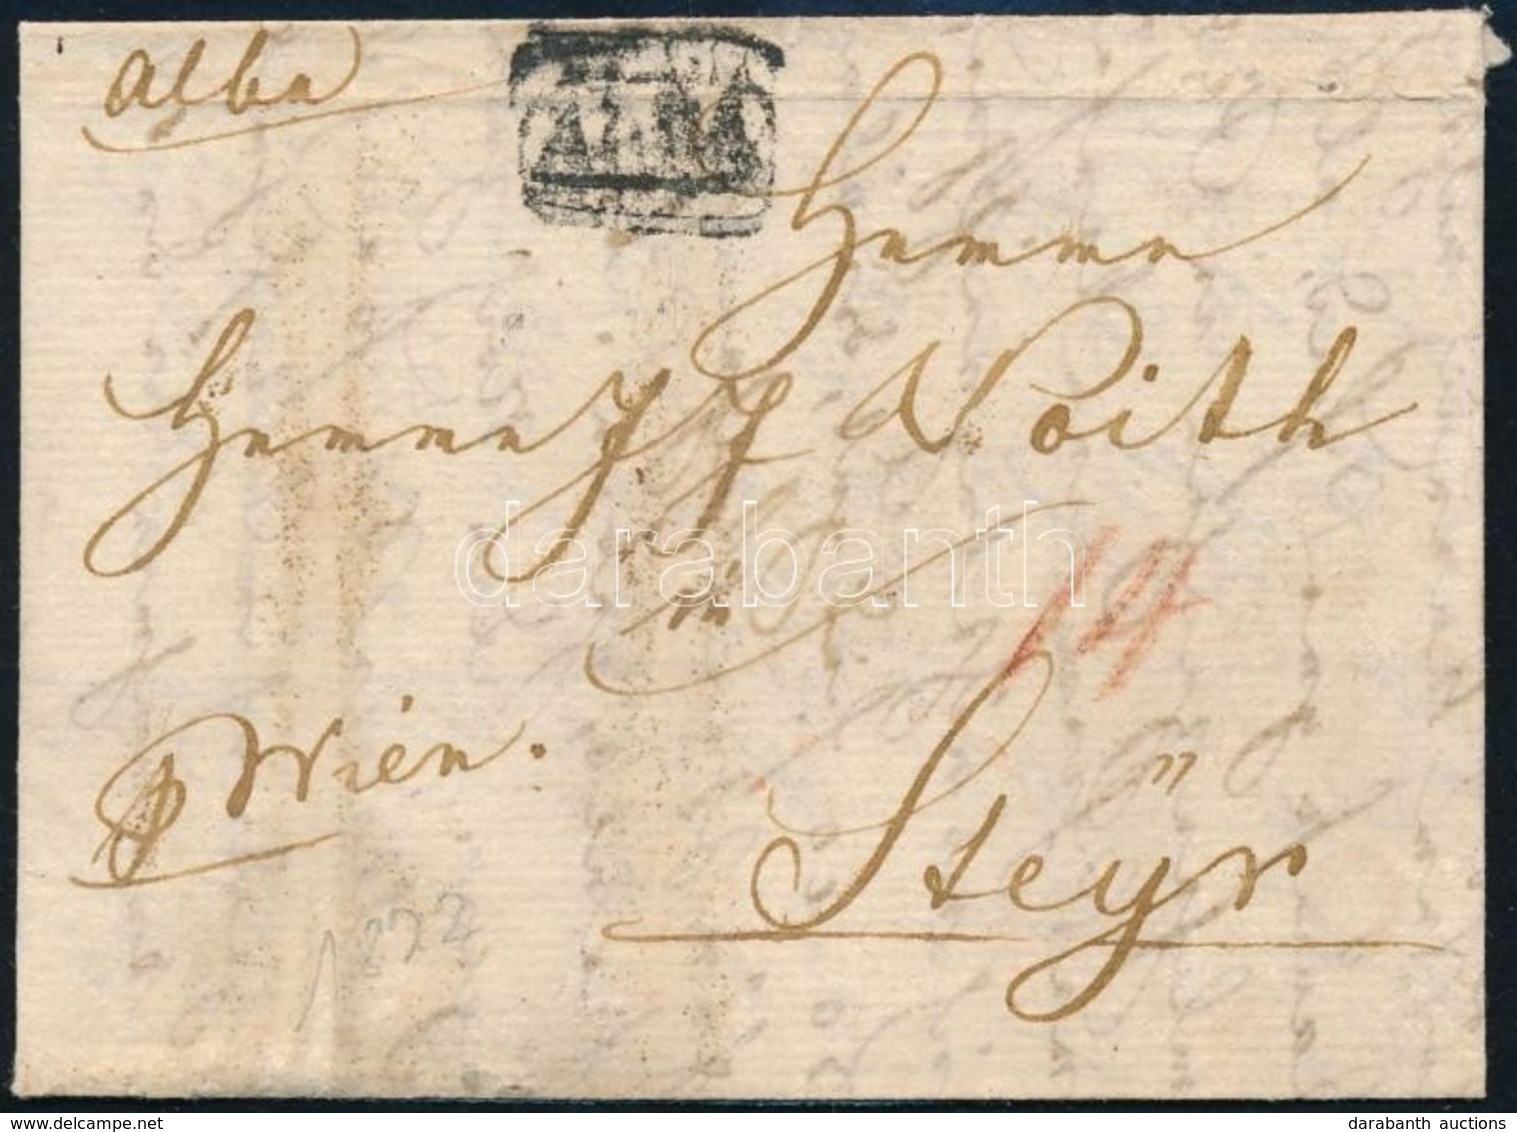 Alba
ALBA
Herrn
Herrn J J Voith
in
14
Wien.
Steÿr
1822
darabanth
© delcampe.net
darabanth auctions